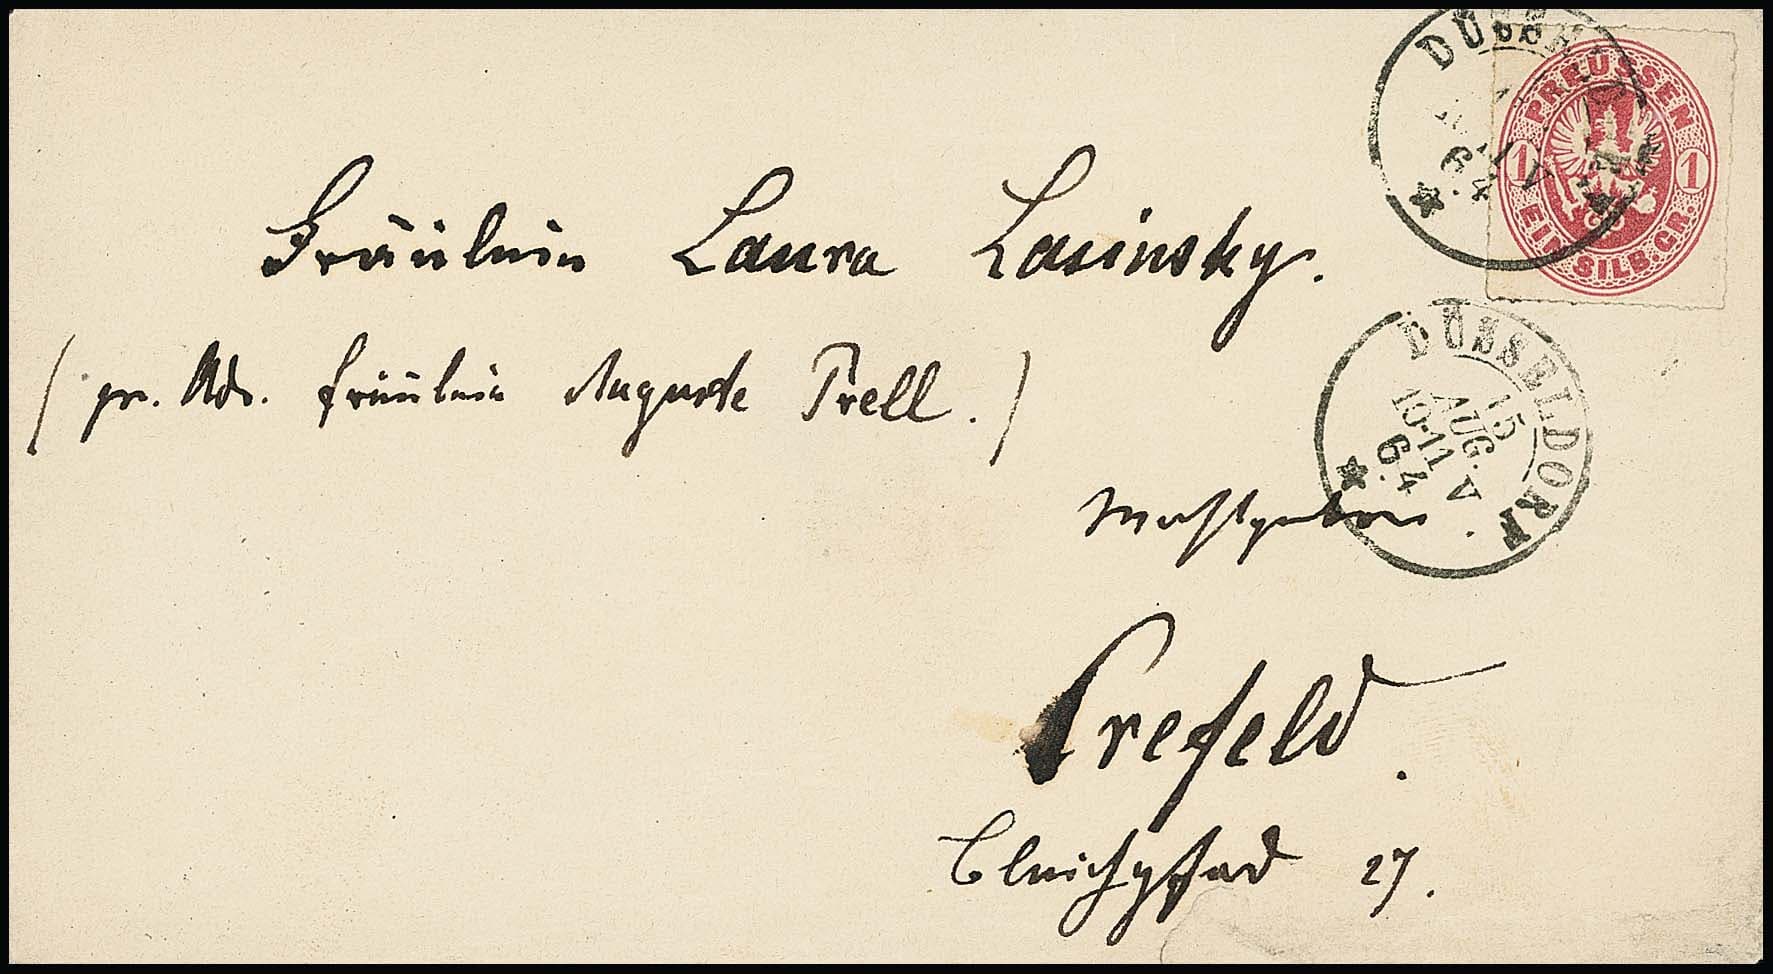 DÜSSEL
6.4
PREUSSEN
1 1
EIN SILB. GR.
Fräulein Laura Lasinsky.
(pr. Adr. Fräulein Auguste Prell.)
DÜSSELDORF
15
AUG.
10-11 V
6.4
Crefeld.
Bleichpfad 27.